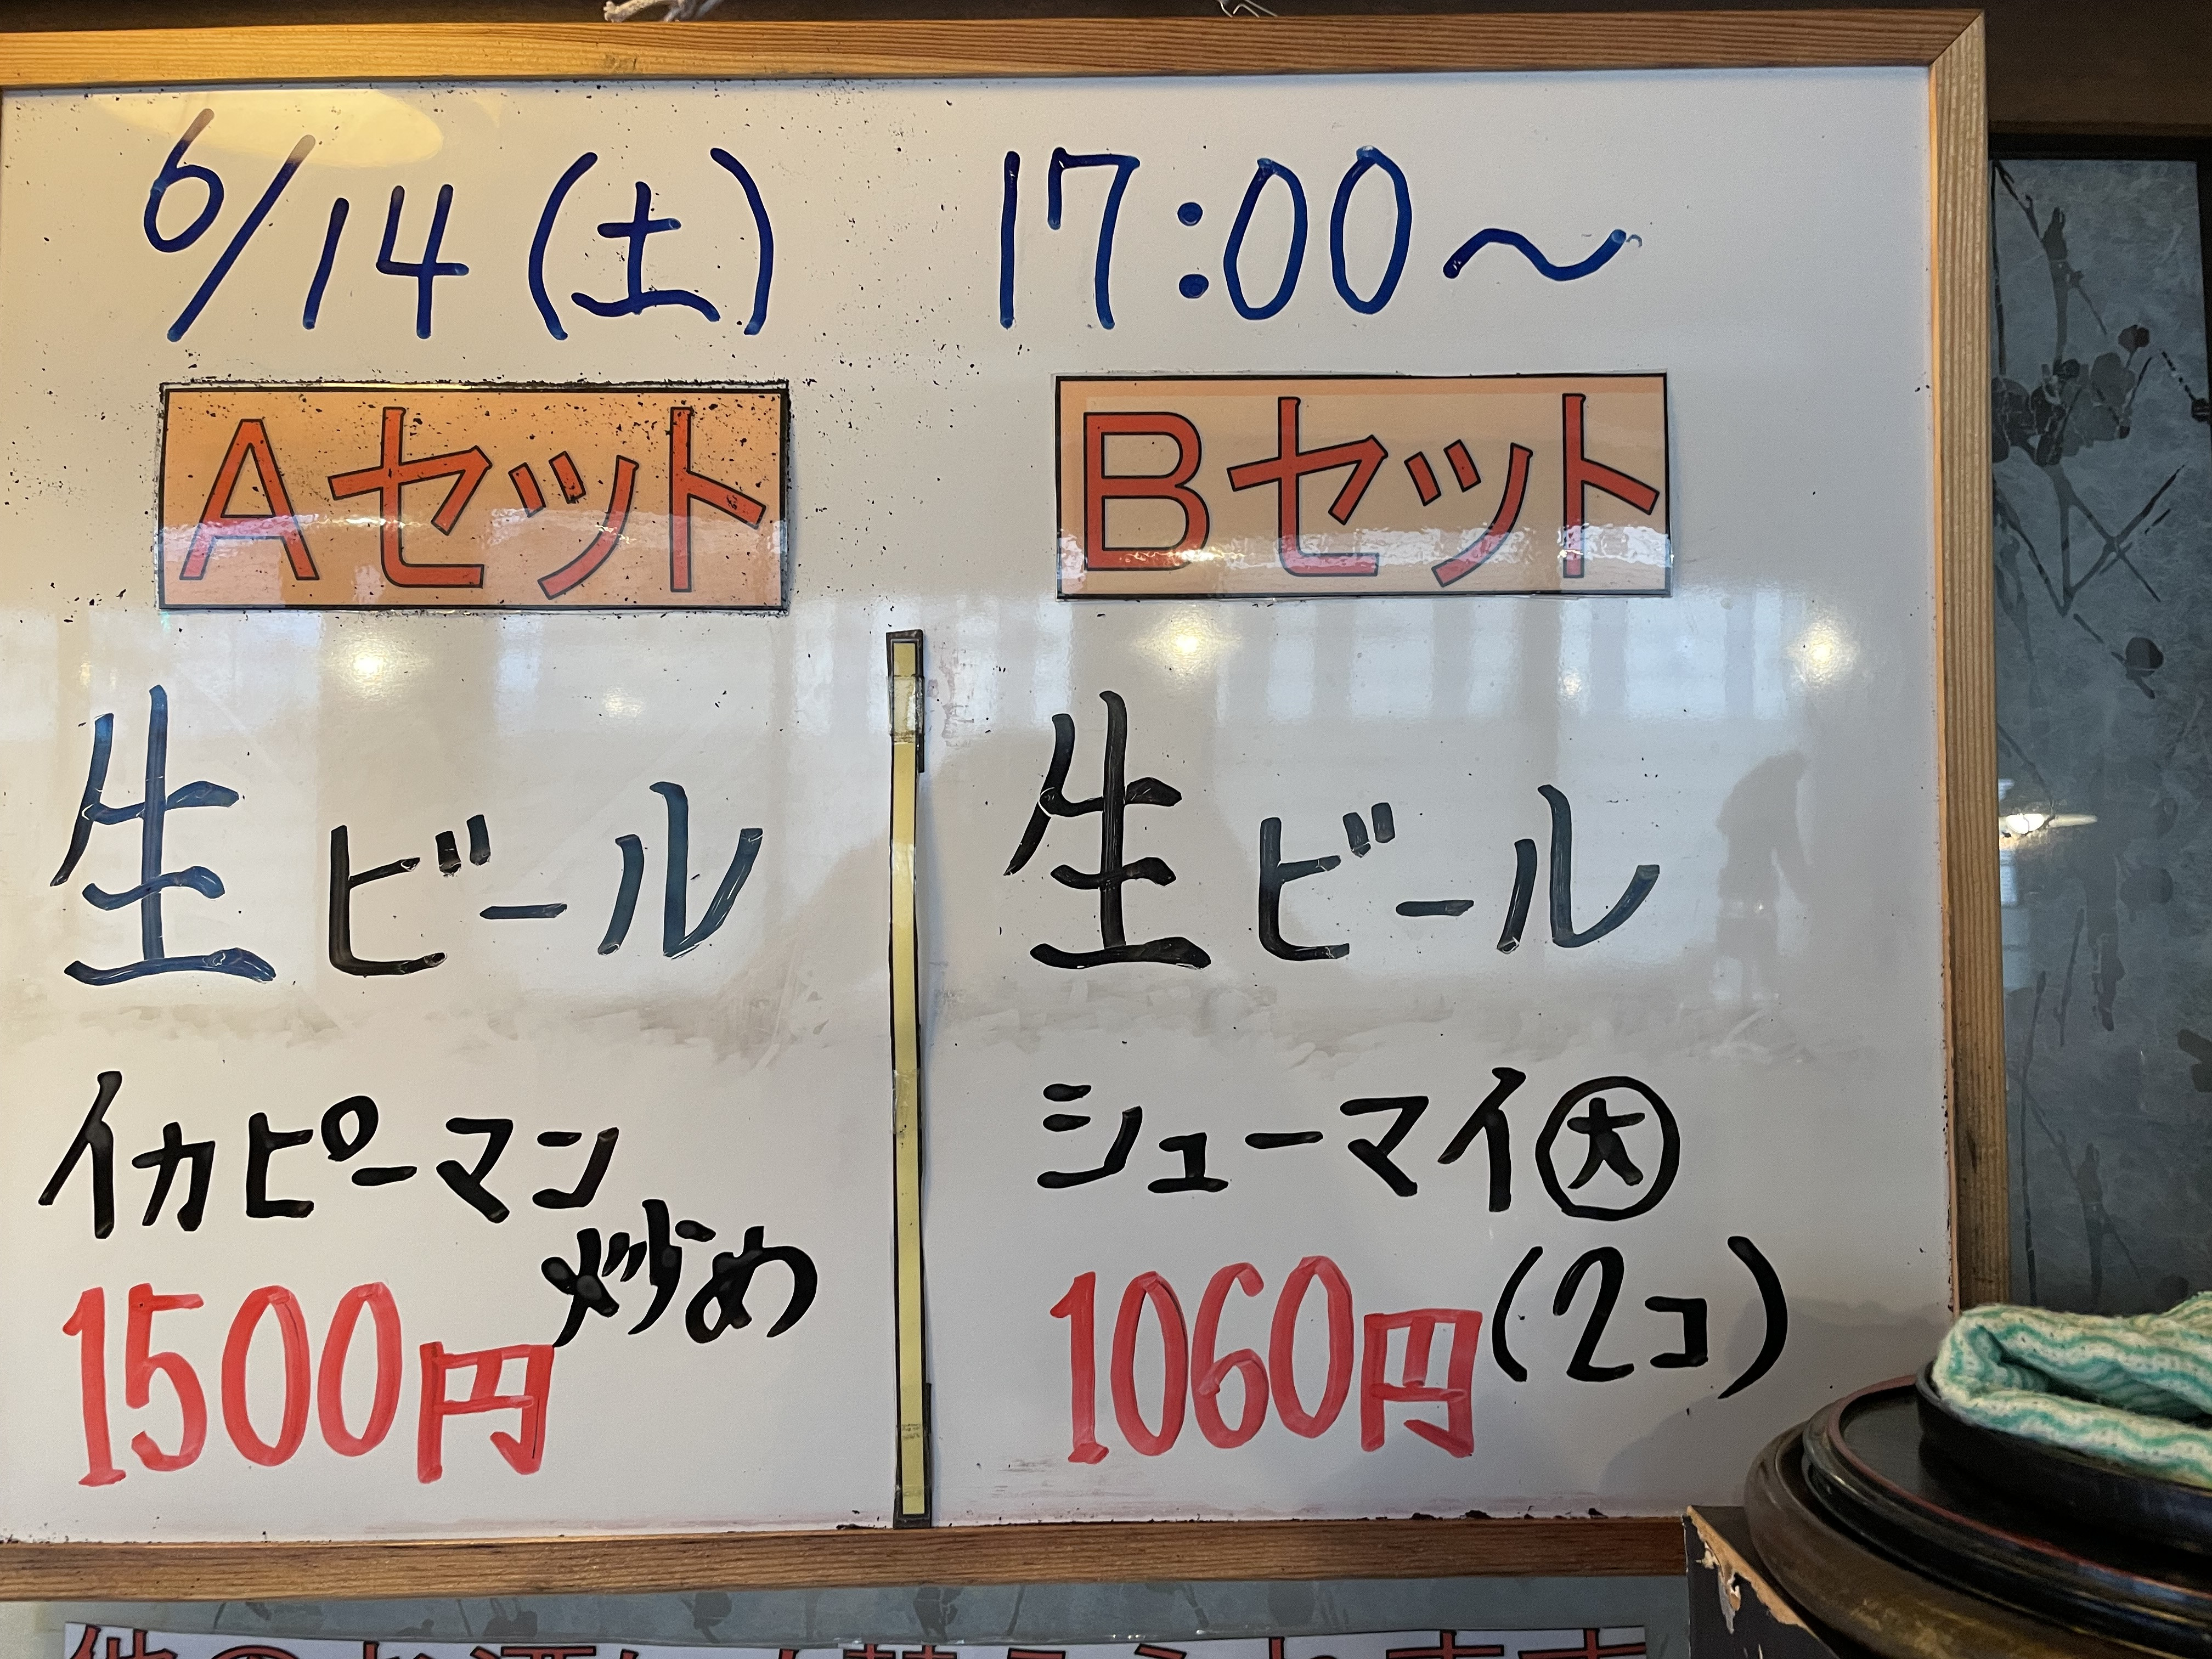 6/14(土) 17:00〜
Aセット
生ビール
イカピーマン
炒め
1500円
Bセット
生ビール
シューマイ㊛
(2コ)
1060円